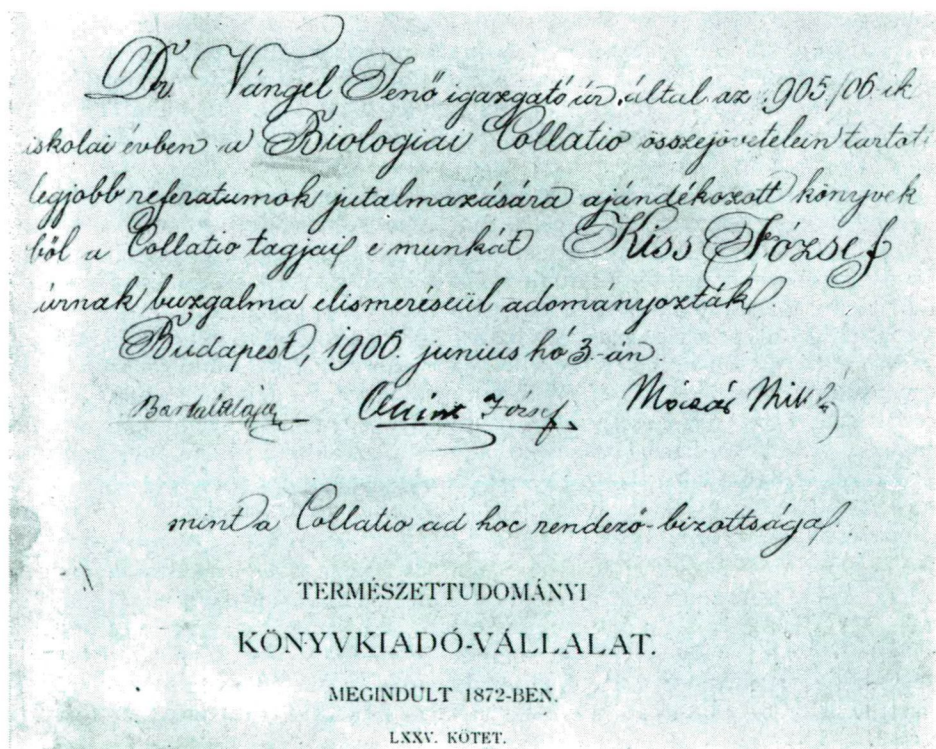 Dr. Vángel Jenő igazgató úr által az 905/06.ik
iskolai évben a Biologiai Collatio összejövetelein tartott
legjobb referatumok jutalmazására ajándékozott könyvek
ből a Collatio tagjai e munkát Kiss József
úrnak buzgalma elismeréseül adományozták.
Budapest, 1906. junius hó 3-án.
József Móczár
mint a Collatio ad hoc rendező-bizottsága.
TERMÉSZETTUDOMÁNYI
KÖNYVKIADÓ-VÁLLALAT.
MEGINDULT 1872-BEN.
LXXV. KÖTET.